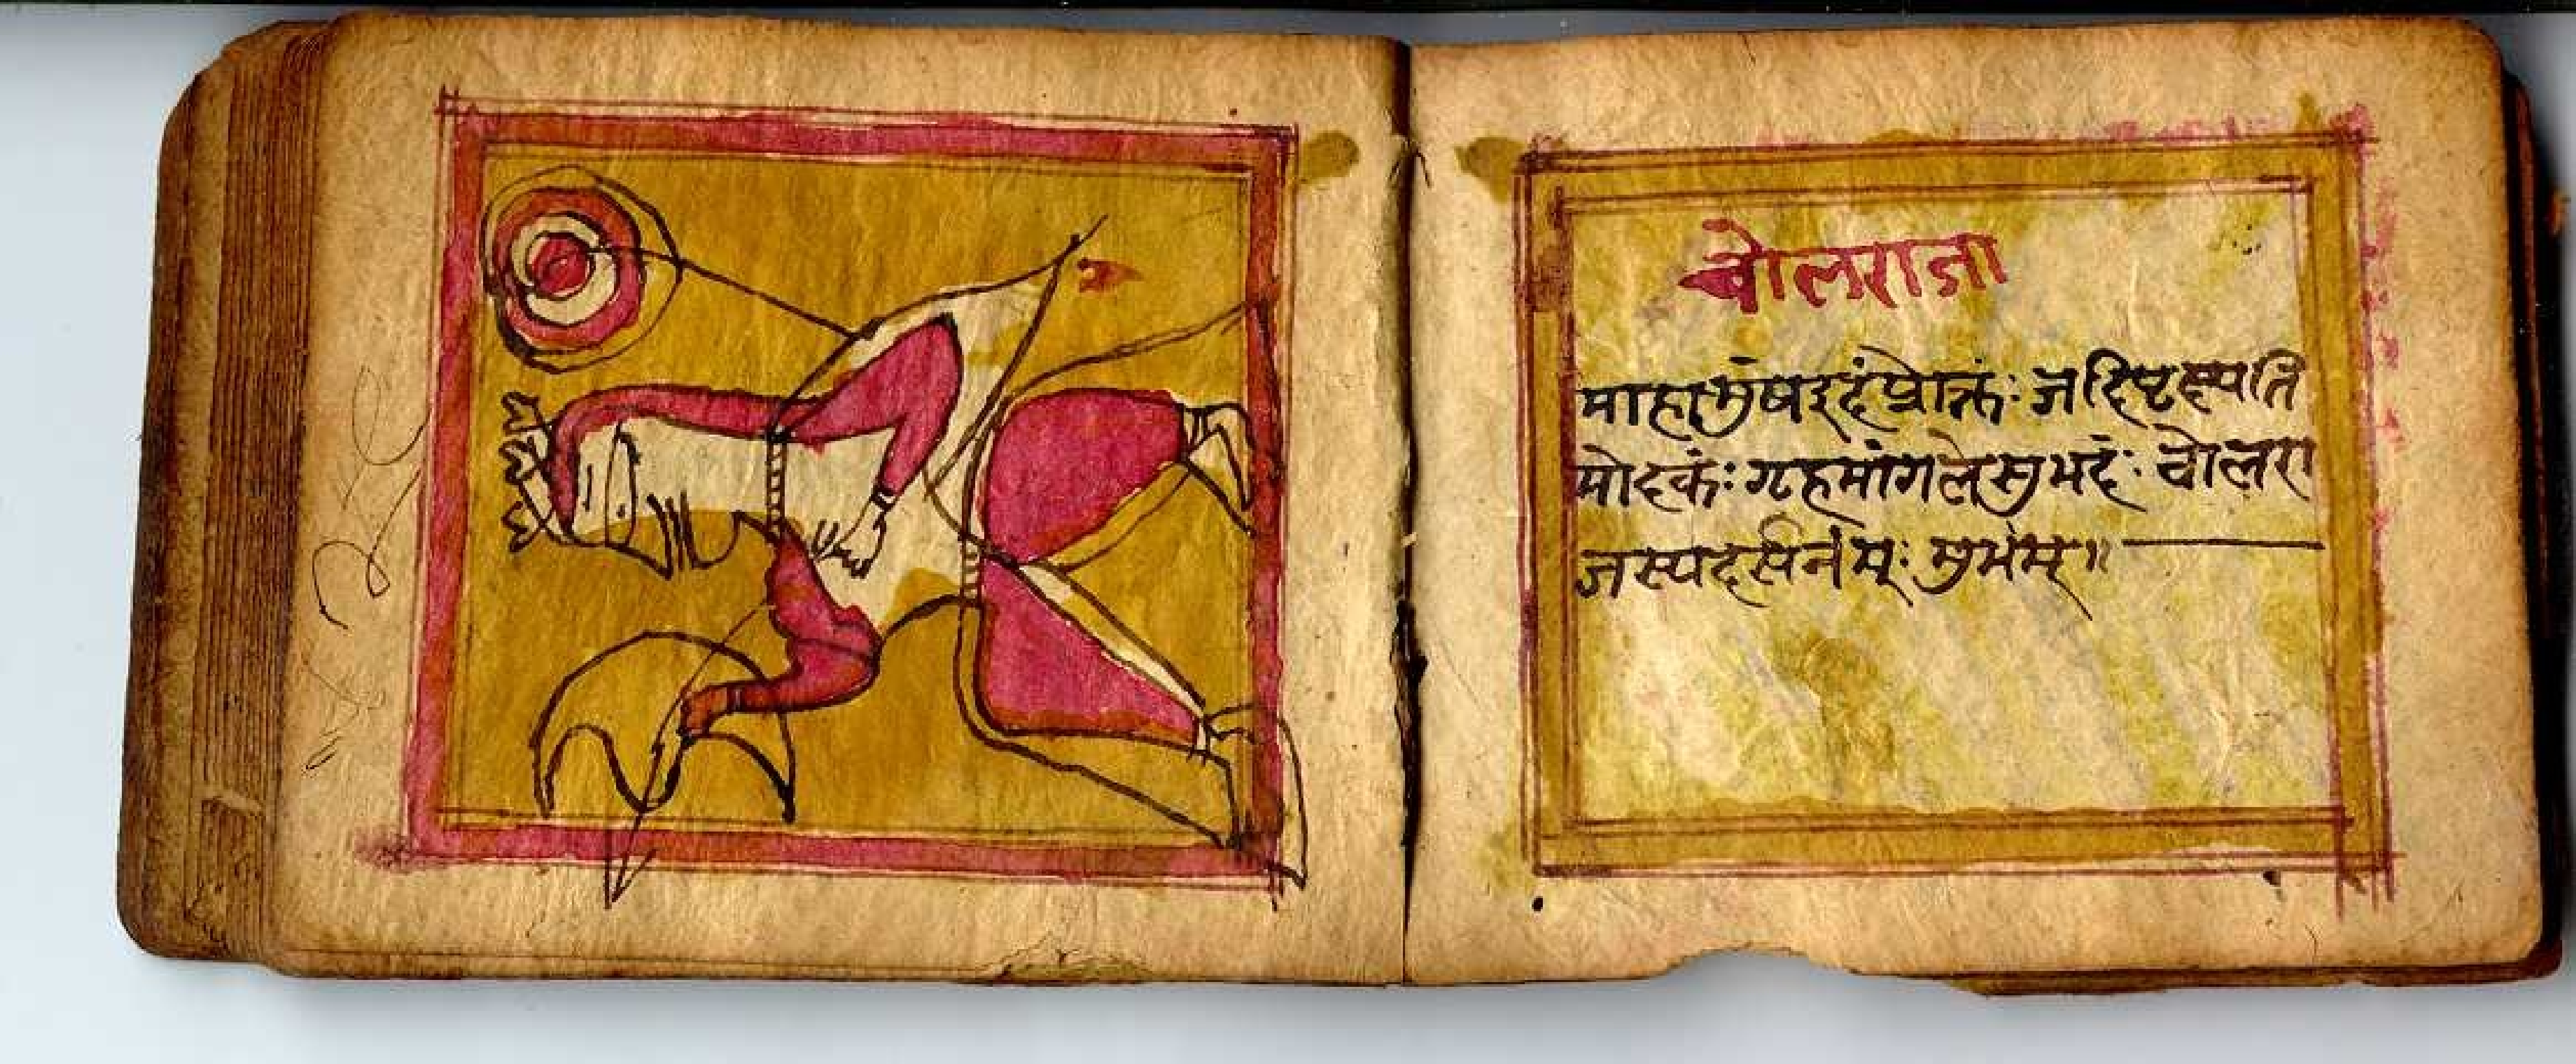 चोलराजा
माहासुंषइदंप्रोक्तं: जदिष्टस्यपति
मोदकं: गृहमांगलेसुभदं: चोलरा
जस्यदर्सनंम्: सुभंम्॥